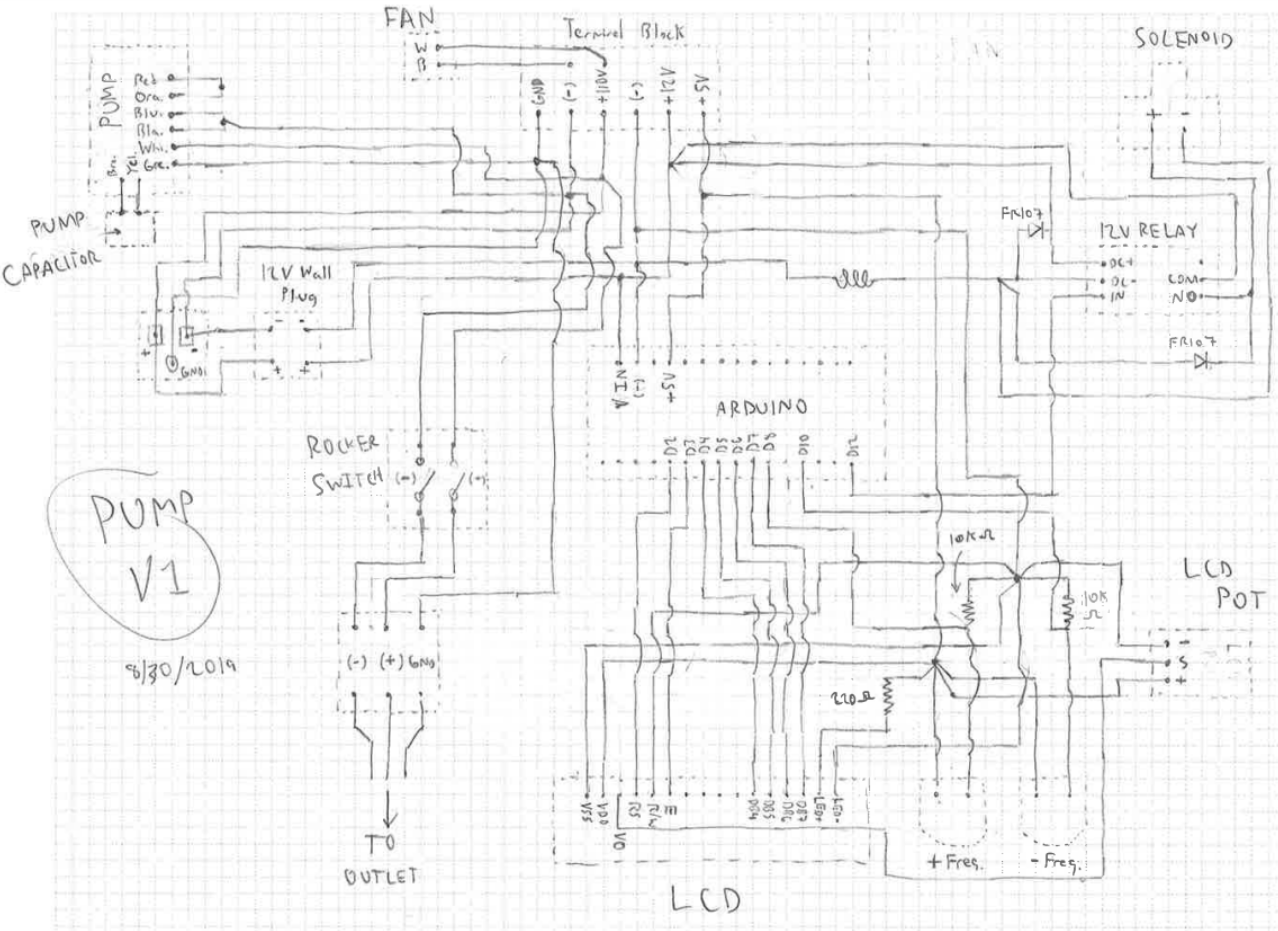 FAN
W
B
Terminal Block
GND
(-)
+110V
(-)
+12V
+5V
SOLENOID
+ -
PUMP
Red
Ora.
Blu.
Bla.
Whi.
Gre.
Bro.
Yel.
PUMP
CAPACITOR
12V Wall
Plug
- -
+ +
+ -
GND
FR107
12V RELAY
DC+
DC-
IN
COM
NO
FR107
VIN
(-)
+5V
ARDUINO
D2
D3
D4
D5
D6
D7
D8
D10
D12
ROCKER
SWITCH (-) (+)
PUMP
V1
8/30/2019
10KΩ
10K
Ω
LCD
POT
-
S
+
(-) (+) GND
220Ω
VSS
VDD
VO
RS
R/W
E
DB4
DB5
DB6
DB7
LED+
LED-
+ Freq.
- Freq.
TO
OUTLET
LCD